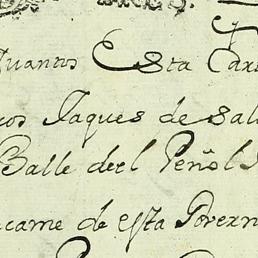 Juantos Esta Car
cos Jaques de Sal
Balle del Peñol
came de esta Govern